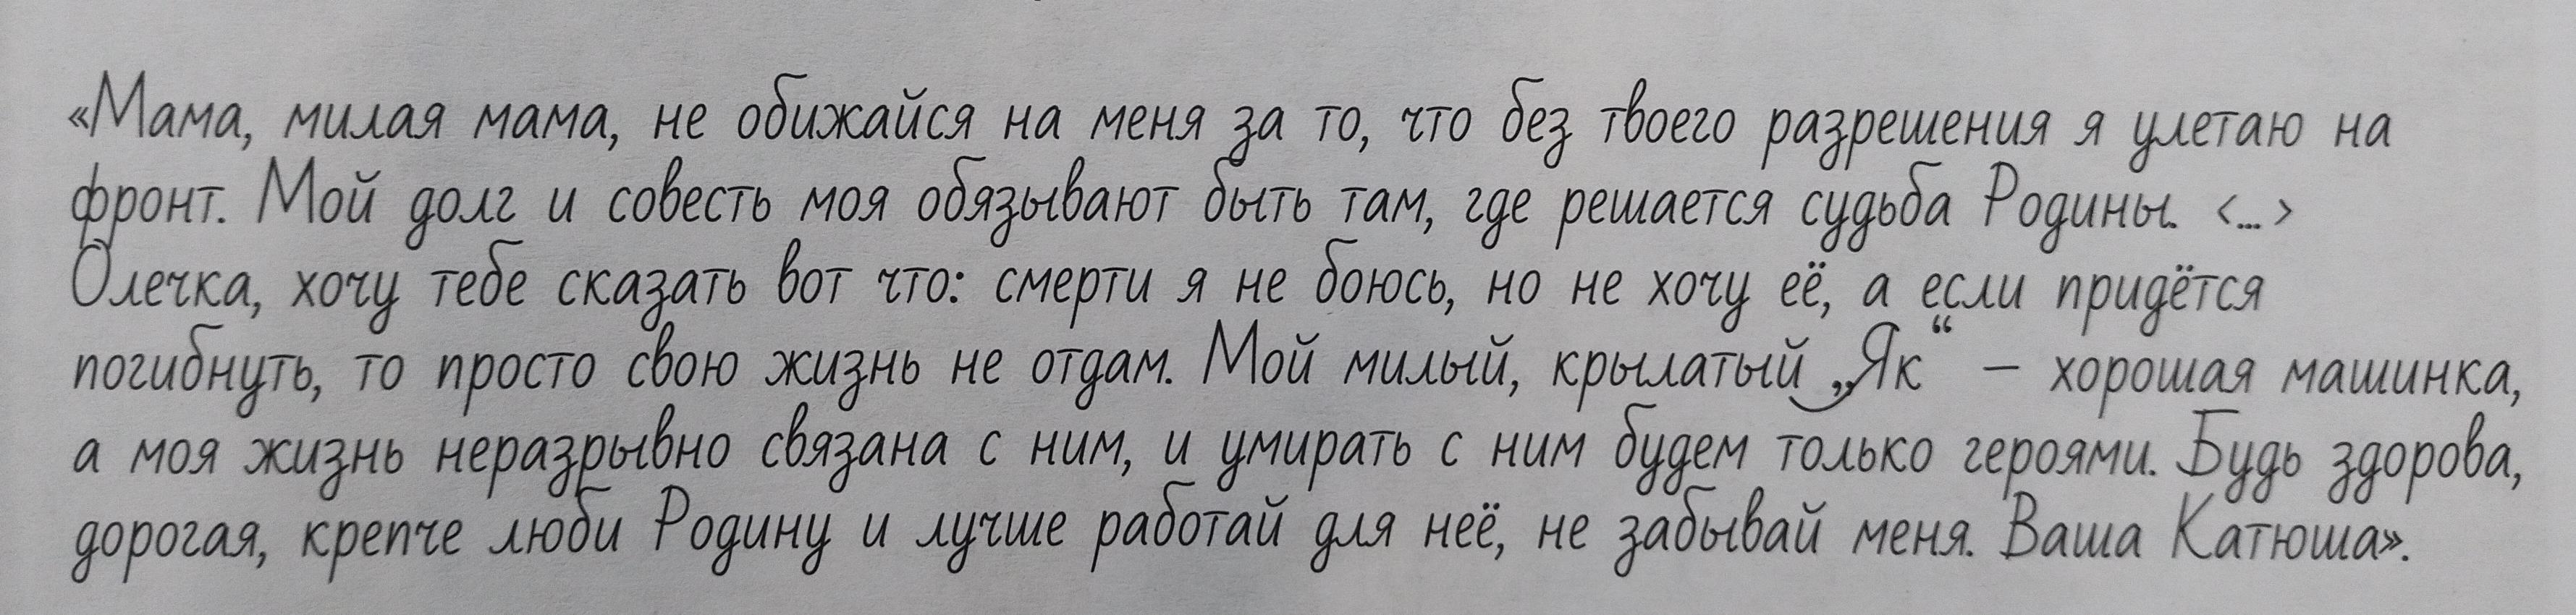 «Мама, милая мама, не обижайся на меня за то, что без твоего разрешения я улетаю на
фронт. Мой долг и совесть моя обязывают быть там, где решается судьба Родины. <...>
Олечка, хочу тебе сказать вот что: смерти я не боюсь, но не хочу её, а если придётся
погибнуть, то просто свою жизнь не отдам. Мой милый, крылатый „Як“ — хорошая машинка,
а моя жизнь неразрывно связана с ним, и умирать с ним будем только героями. Будь здорова,
дорогая, крепче люби Родину и лучше работай для неё, не забывай меня. Ваша Катюша».